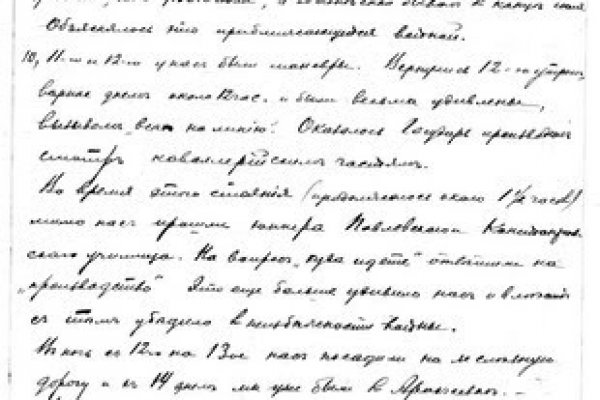 Объяснялось это приближающейся войной.
10, 11-го и 12-го у нас были маневры. Вернулись 12-го утром,
вернее днем около 12 час. и были весьма удивлены,
вызовом „всех на линию“. Оказалось Государь производит
смотр кавалерийским частям.
Во время этого стояния (продолжалось около 1½ часов)
мимо нас прошли юнкера Павловского
училища. На вопрос „куда идете“ ответили на
„производство“ Это еще больше удивило нас и
с тем убедило в неизбежности войны.
В ночь с 12го на 13ое нас посадили на железную
дорогу и к 14 днем мы уже были в